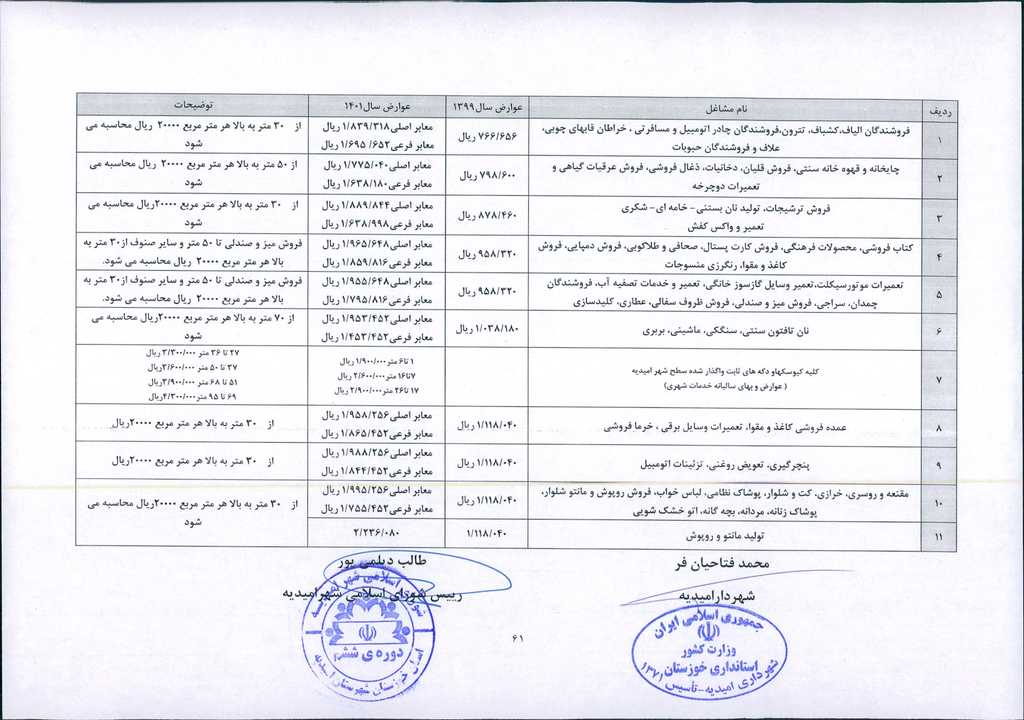 ردیف نام مشاغل عوارض سال۱۳۹۹ عوارض سال۱۴۰۱ توضیحات
۱ فروشندگان الیاف،کشباف، تترون،فروشندگان چادر اتومبیل و مسافرتی ، خراطان قابهای چوبی، ۷۶۶/۶۵۶ ریال معابر اصلی۱/۸۳۹/۳۱۸ ریال از ۳۰ متر به بالا هر متر مربع ۲۰۰۰۰ ریال محاسبه می
علاف و فروشندگان حبوبات معابر فرعی۱/۶۹۵/۶۵۲ ریال شود
۲ چایخانه و قهوه خانه سنتی، فروش قلیان، دخانیات، ذغال فروشی، فروش عرقیات گیاهی و ۷۹۸/۶۰۰ ریال معابر اصلی۱/۷۷۵/۰۴۰ ریال از ۵۰ متر به بالا هر متر مربع ۲۰۰۰۰ ریال محاسبه می
تعمیرات دوچرخه معابر فرعی۱/۶۳۸/۱۸۰ ریال شود
۳ فروش ترشیجات، تولید نان بستنی- خامه ای- شکری ۸۷۸/۴۶۰ ریال معابر اصلی۱/۸۸۹/۸۴۴ ریال از ۳۰ متر به بالا هر متر مربع ۲۰۰۰۰ریال محاسبه می
تعمیر و واکس کفش معابر فرعی۱/۶۳۸/۹۹۸ ریال شود
۴ کتاب فروشی، محصولات فرهنگی، فروش کارت پستال، صحافی و طلاکوبی، فروش دمپایی، فروش ۹۵۸/۳۲۰ ریال معابر اصلی۱/۹۶۵/۶۴۸ ریال فروش میز و صندلی تا ۵۰ متر و سایر صنوف از۳۰ متر به
کاغذ و مقوا، رنگرزی منسوجات معابر فرعی۱/۸۵۹/۸۱۶ ریال بالا هر متر مربع ۲۰۰۰۰ ریال محاسبه می شود.
۵ تعمیرات موتورسیکلت،تعمیر وسایل گازسوز خانگی، تعمیر و خدمات تصفیه آب، فروشندگان ۹۵۸/۳۲۰ ریال معابر اصلی۱/۹۵۵/۶۴۸ ریال فروش میز و صندلی تا ۵۰ متر و سایر صنوف از۳۰ متر به
چمدان، سراجی، فروش میز و صندلی، فروش ظروف سفالی، عطاری، کلیدسازی معابر فرعی۱/۷۹۵/۸۱۶ ریال بالا هر متر مربع ۲۰۰۰۰ ریال محاسبه می شود.
۶ نان تافتون سنتی، سنگکی، ماشینی، بربری ۱/۰۳۸/۱۸۰ ریال معابر اصلی۱/۹۵۳/۴۵۲ ریال از ۷۰ متر به بالا هر متر مربع ۲۰۰۰۰ریال محاسبه می
معابر فرعی۱/۴۵۳/۴۵۲ ریال شود
۷ کلیه کیوسکهاو دکه های ثابت واگذار شده سطح شهر امیدیه
( عوارض و بهای سالیانه خدمات شهری)
۱ تا۶ متر۱/۹۰۰/۰۰۰ ریال
۷تا۱۶ متر۲/۶۰۰/۰۰۰ ریال
۱۷ تا۲۶ متر۲/۹۰۰/۰۰۰ ریال
۲۷ تا ۳۶ متر ۳/۳۰۰/۰۰۰ ریال
۳۷ تا ۵۰ متر ۳/۶۰۰/۰۰۰ریال
۵۱ تا ۶۸ متر ۳/۹۰۰/۰۰۰ریال
۶۹ تا ۹۵ متر ۴/۳۰۰/۰۰۰ریال
۸ عمده فروشی کاغذ و مقوا، تعمیرات وسایل برقی ، خرما فروشی ۱/۱۱۸/۰۴۰ ریال معابر اصلی۱/۹۵۸/۲۵۶ ریال از ۳۰ متر به بالا هر متر مربع ۲۰۰۰۰ریال
معابر فرعی۱/۸۶۵/۴۵۲ ریال
۹ پنچرگیری، تعویض روغنی، تزئینات اتومبیل ۱/۱۱۸/۰۴۰ ریال معابر اصلی۱/۹۸۸/۲۵۶ ریال از ۳۰ متر به بالا هر متر مربع ۲۰۰۰۰ریال
معابر فرعی۱/۸۴۴/۴۵۲ ریال
۱۰ مقنعه و روسری، خرازی، کت و شلوار، پوشاک نظامی، لباس خواب، فروش روپوش و مانتو شلوار، ۱/۱۱۸/۰۴۰ ریال معابر اصلی۱/۹۹۵/۲۵۶ ریال از ۳۰ متر به بالا هر متر مربع ۲۰۰۰۰ریال محاسبه می
پوشاک زنانه، مردانه، بچه گانه، اتو خشک شویی معابر فرعی۱/۷۵۵/۴۵۲ ریال شود
۱۱ تولید مانتو و روپوش ۱/۱۱۸/۰۴۰ ۲/۲۳۶/۰۸۰
محمد فتاحیان فر
شهردارامیدیه
طالب دیلمی پور
رییس شورای اسلامی شهرامیدیه
جمهوری اسلامی ایران
وزارت کشور
استانداری خوزستان
شهرداری امیدیه-تأسیس ۱۳۷۱
شورای اسلامی شهر امیدیه
دوره ی ششم
استان خوزستان شهرستان امیدیه
۶۱